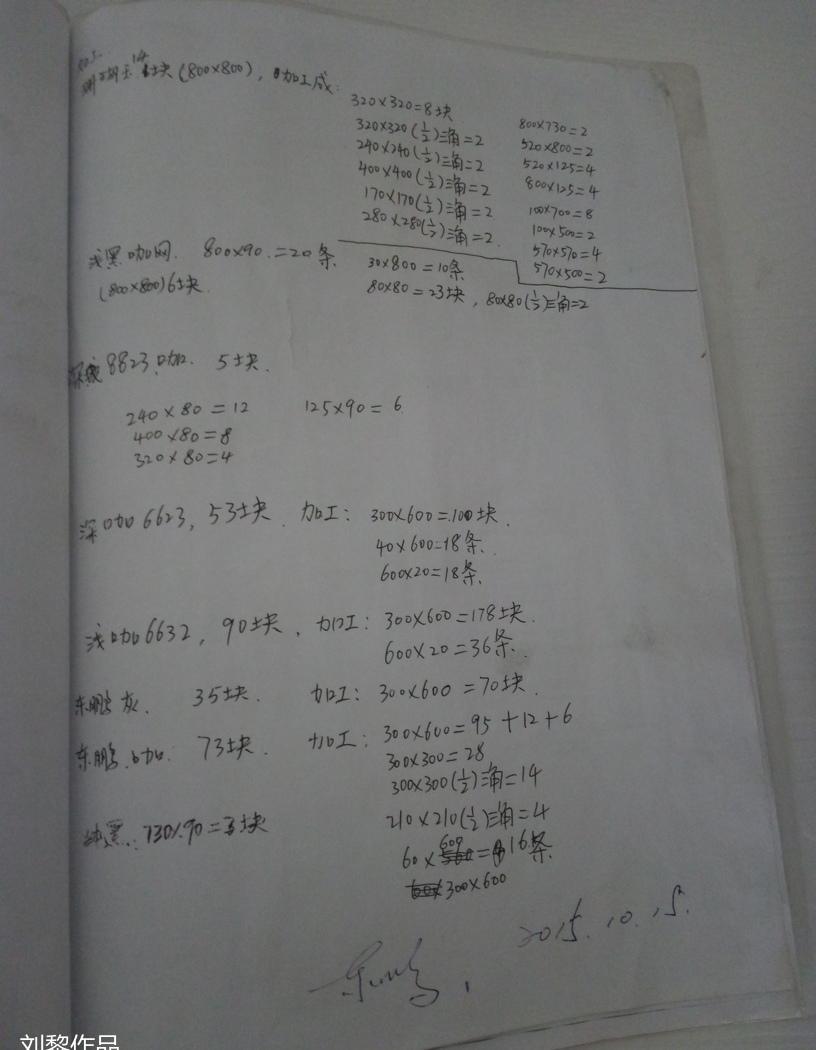 14块(800×800), 加工成:
320×320=8块
320×320(1/2)三角=2
240×240(1/2)三角=2
400×400(1/2)三角=2
170×170(1/2)三角=2
280×280(1/2)三角=2
800×730=2
520×800=2
520×125=4
800×125=4
100×700=8
100×500=2
570×570=4
570×500=2
浅黑咖网. 800×90.=20条.
(800×800)6块.
30×800=10条
80×80=23块, 80×80(1/2)三角=2
8823咖. 5块.
240×80=12
400×80=8
320×80=4
125×90=6
深咖6623, 53块. 加工: 300×600=100块.
40×600=18条.
600×20=18条.
浅咖6632, 90块. 加工: 300×600=178块.
600×20=36条.
东鹏灰. 35块. 加工: 300×600=70块.
东鹏咖. 73块. 加工: 300×600=95+12+6
300×300=28
300×300(1/2)三角=14
210×210(1/2)三角=4
纯黑: 730×90=3块
60×600=16条
300×600
2015.10.15.
刘黎作品